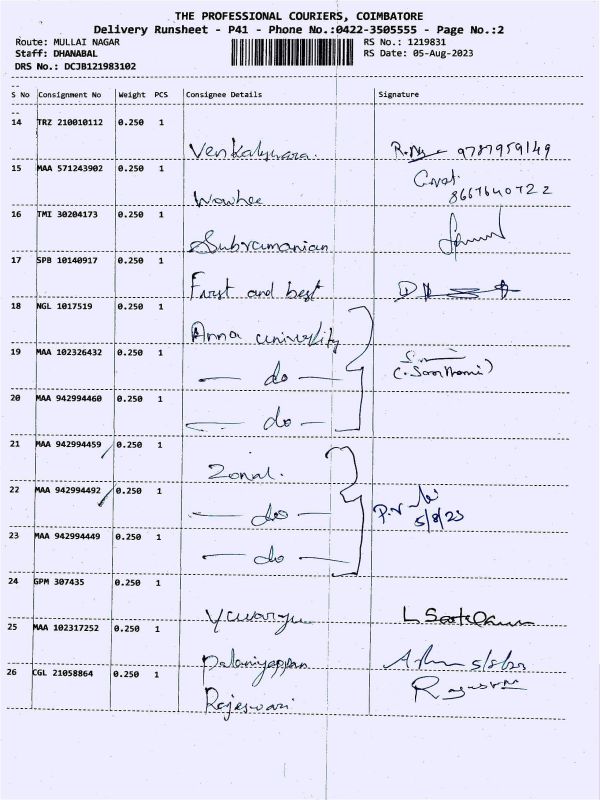 THE PROFESSIONAL COURIERS, COIMBATORE
Delivery Runsheet - P41 - Phone No.:0422-3505555 - Page No.:2
Route: MULLAI NAGAR RS No.: 1219831
Staff: DHANABAL RS Date: 05-Aug-2023
DRS No.: DCJB121983102
S No Consignment No Weight PCS Consignee Details Signature
14 TRZ 210010112 0.250 1
9787959149
15 MAA 571243902 0.250 1
8667640722
16 TMI 30204173 0.250 1
Subramanian
17 SPB 10140917 0.250 1
First and best
18 NGL 1017519 0.250 1
Anna university
19 MAA 102326432 0.250 1
— do —
20 MAA 942994460 0.250 1
— do —
21 MAA 942994459 0.250 1
Zonal.
22 MAA 942994492 0.250 1
— do — 5/8/23
23 MAA 942994449 0.250 1
— do —
24 GPM 307435 0.250 1
25 MAA 102317252 0.250 1
Palaniyappan 5/8/23
26 CGL 21058864 0.250 1
Rajeswari